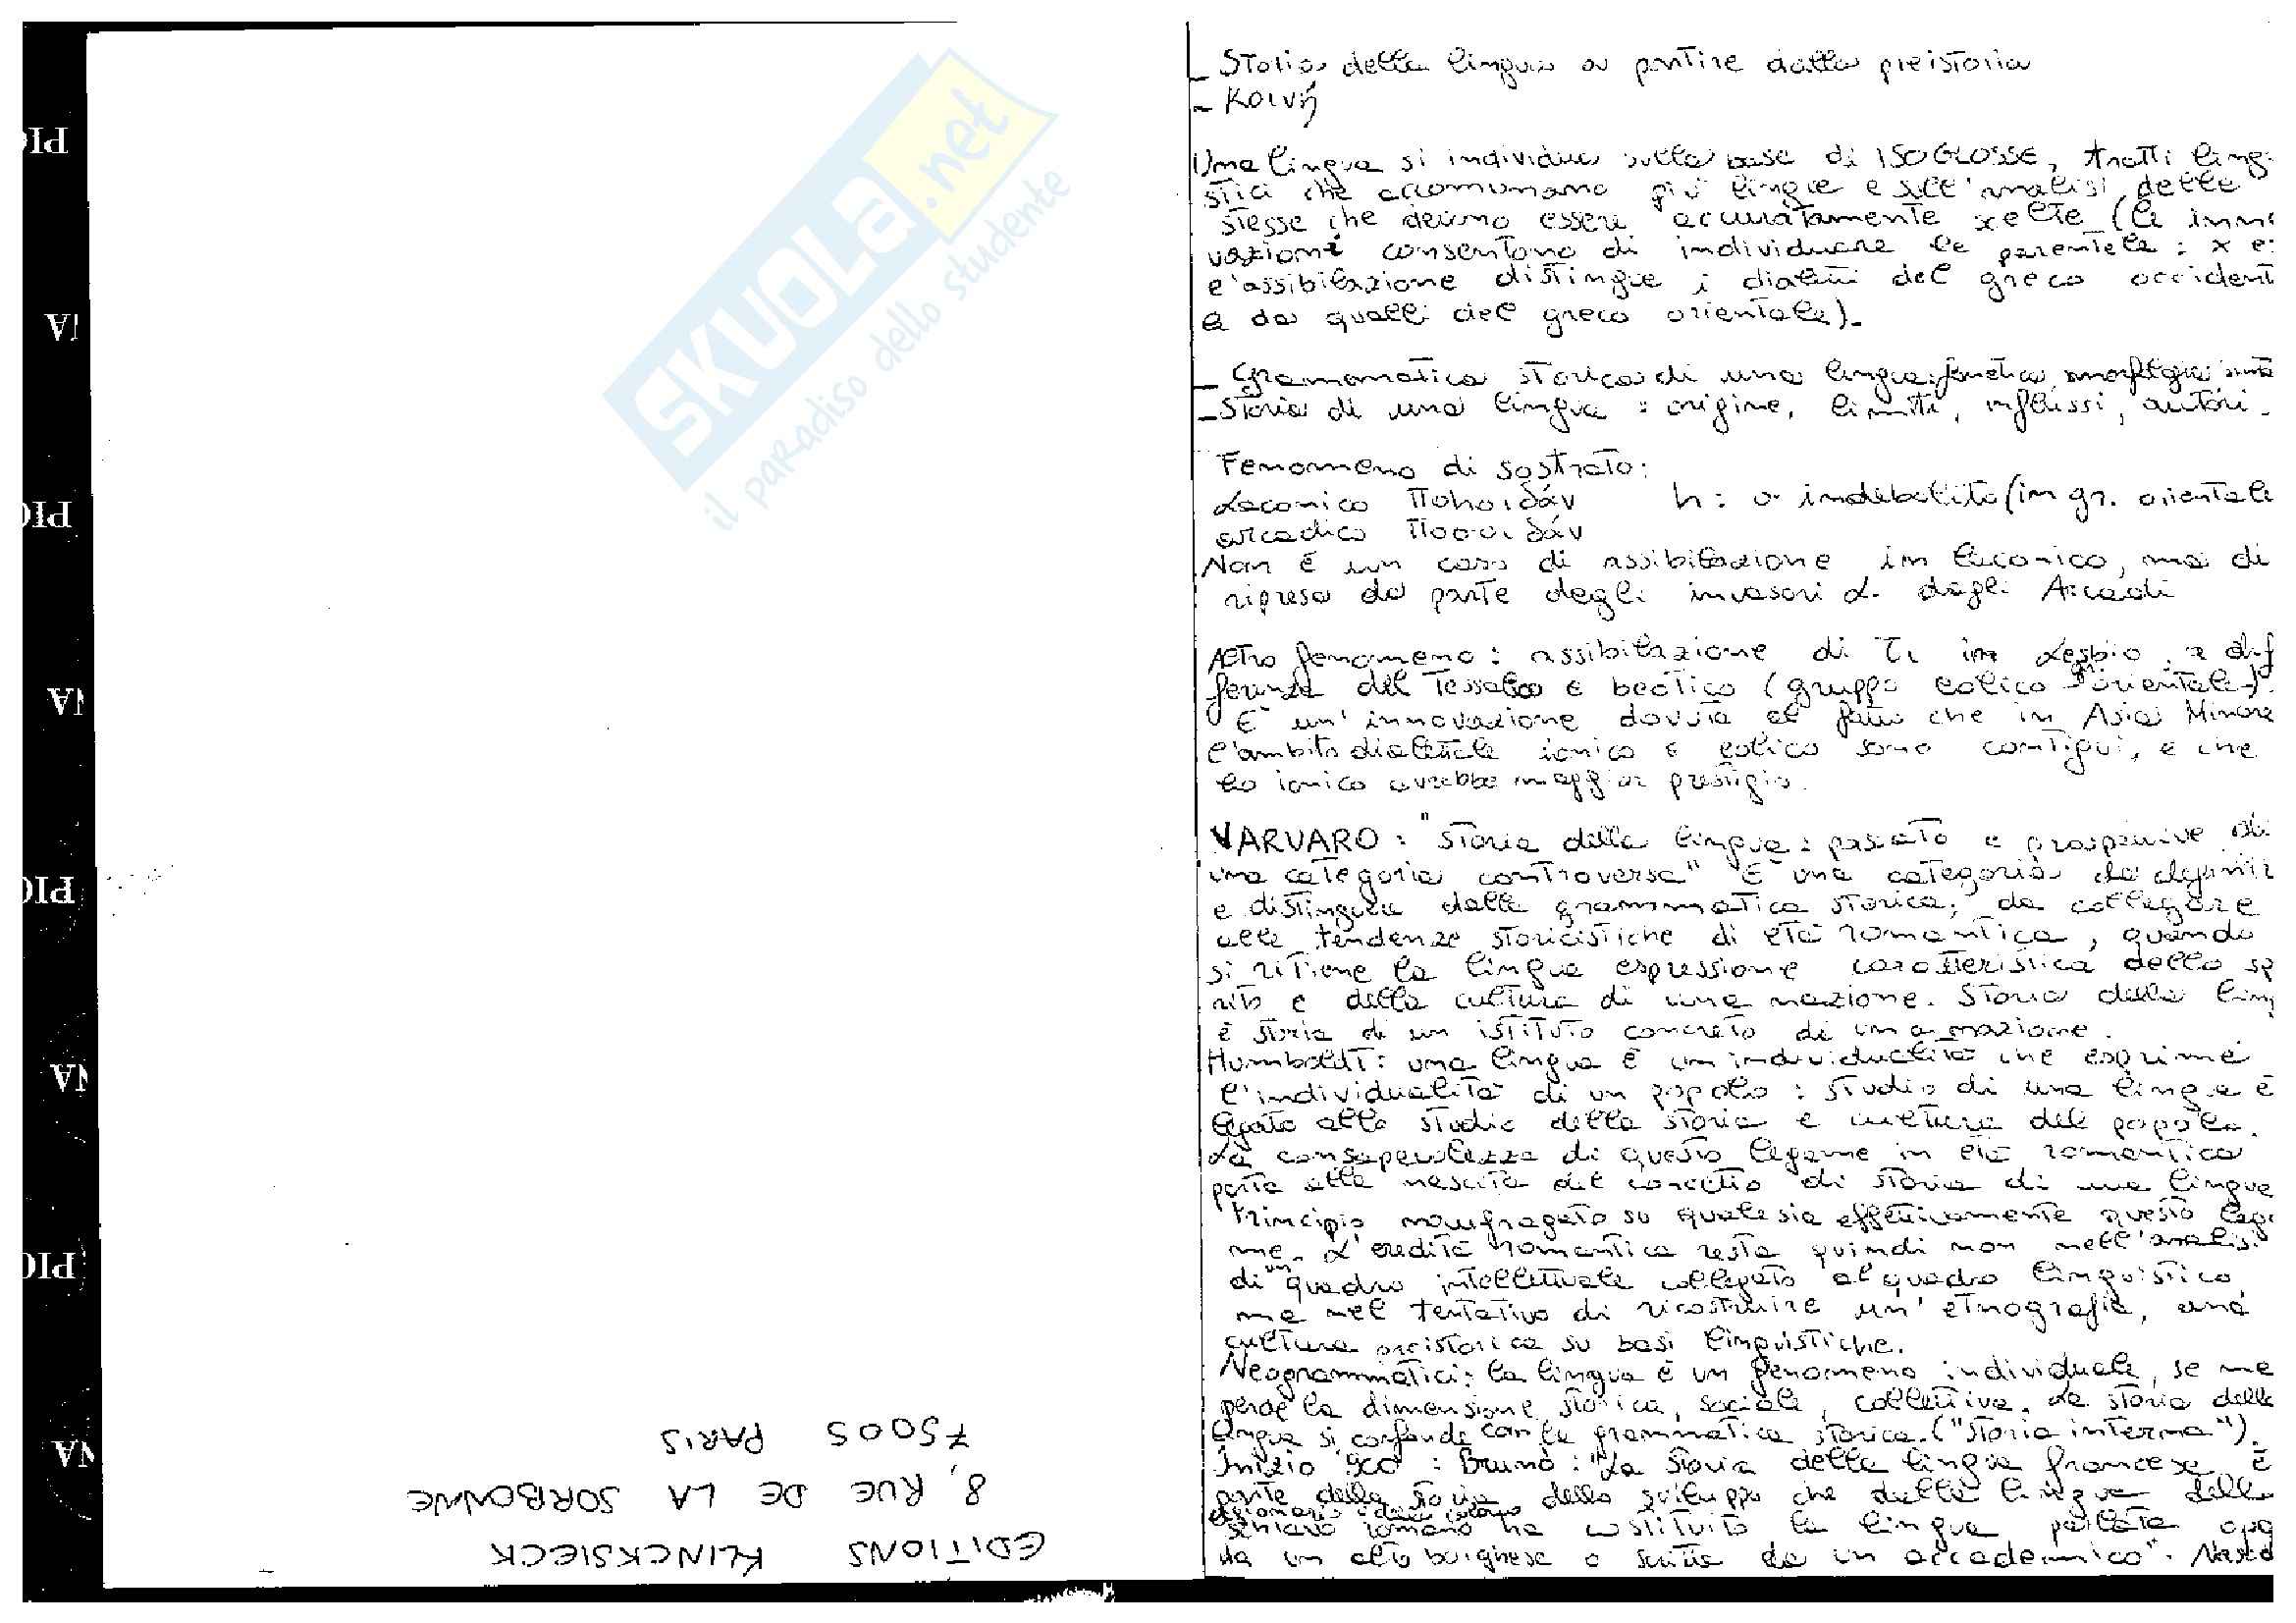 SKUOLA.net
il paradiso dello studente
EDITIONS KLINCKSIECK
8, RUE DE LA SORBONNE
75005 PARIS
_ Storia della lingua a partire dalla preistoria
- Κοινή
Una lingua si individua sulla base di ISOGLOSSE, tratti ling
stici che accomunano più lingue e sull'analisi delle
stesse che devono essere accuratamente scelte (le inno
vazioni consentono di individuare le parentele : x es
l'assibilazione distingue i dialetti del greco occident
e da quelli del greco orientale).
_ Grammatica storica di una lingua: fonetica, morfologia, sinta
_ Storia di una lingua : origine, limiti, influssi, autori.
Fenomeno di sostrato:
Laconico Ποhοιδάν h: σ indebolito (in gr. orientale
arcadico Ποσοιδάν
Non è un caso di assibilazione in laconico, ma di
ripresa da parte degli invasori L. dagli Arcadi
Altro fenomeno : assibilazione di τι in Lesbio, a dif
ferenza del Tessalico e beotico (gruppo eolico orientale).
È un'innovazione dovuta al fatto che in Asia Minore
l'ambito dialettale ionico e eolico sono contigui, e che
lo ionico avrebbe maggior prestigio.
VARVARO : "Storia della lingua : passato e prospettive di
una categoria controversa" È una categoria da definir
e distinguere dalla grammatica storica; da collegare
alle tendenze storicistiche di età romantica, quando
si ritiene la lingua espressione caratteristica dello sp
rito e della cultura di una nazione. Storia della ling
è storia di un istituto concreto di una nazione.
Humboldt : una lingua è un'individualità che esprime
l'individualità di un popolo : studio di una lingua è
legato allo studio della storia e cultura del popolo.
La consapevolezza di questo legame in età romantica
porta alla nascita del concetto di storia di una lingua
Principio naufragato su quale sia effettivamente questo lega
me. L'eredità romantica resta quindi non nell'analisi
di un quadro intellettuale collegato al quadro linguistico,
ma nel tentativo di ricostruire un'etnografia, una
cultura preistorica su basi linguistiche.
Neogrammatici : la lingua è un fenomeno individuale, se ne
perde la dimensione storica, sociale, collettiva. La storia della
lingua si confonde con la grammatica storica. ("Storia interna").
Inizio '900 : Bruno : "La storia della lingua francese è
parte della storia dello sviluppo che dalla lingua dello
schiavo romano ha costituito la lingua parlata ogg
da un alto borghese o scritta da un accademico". Nasce